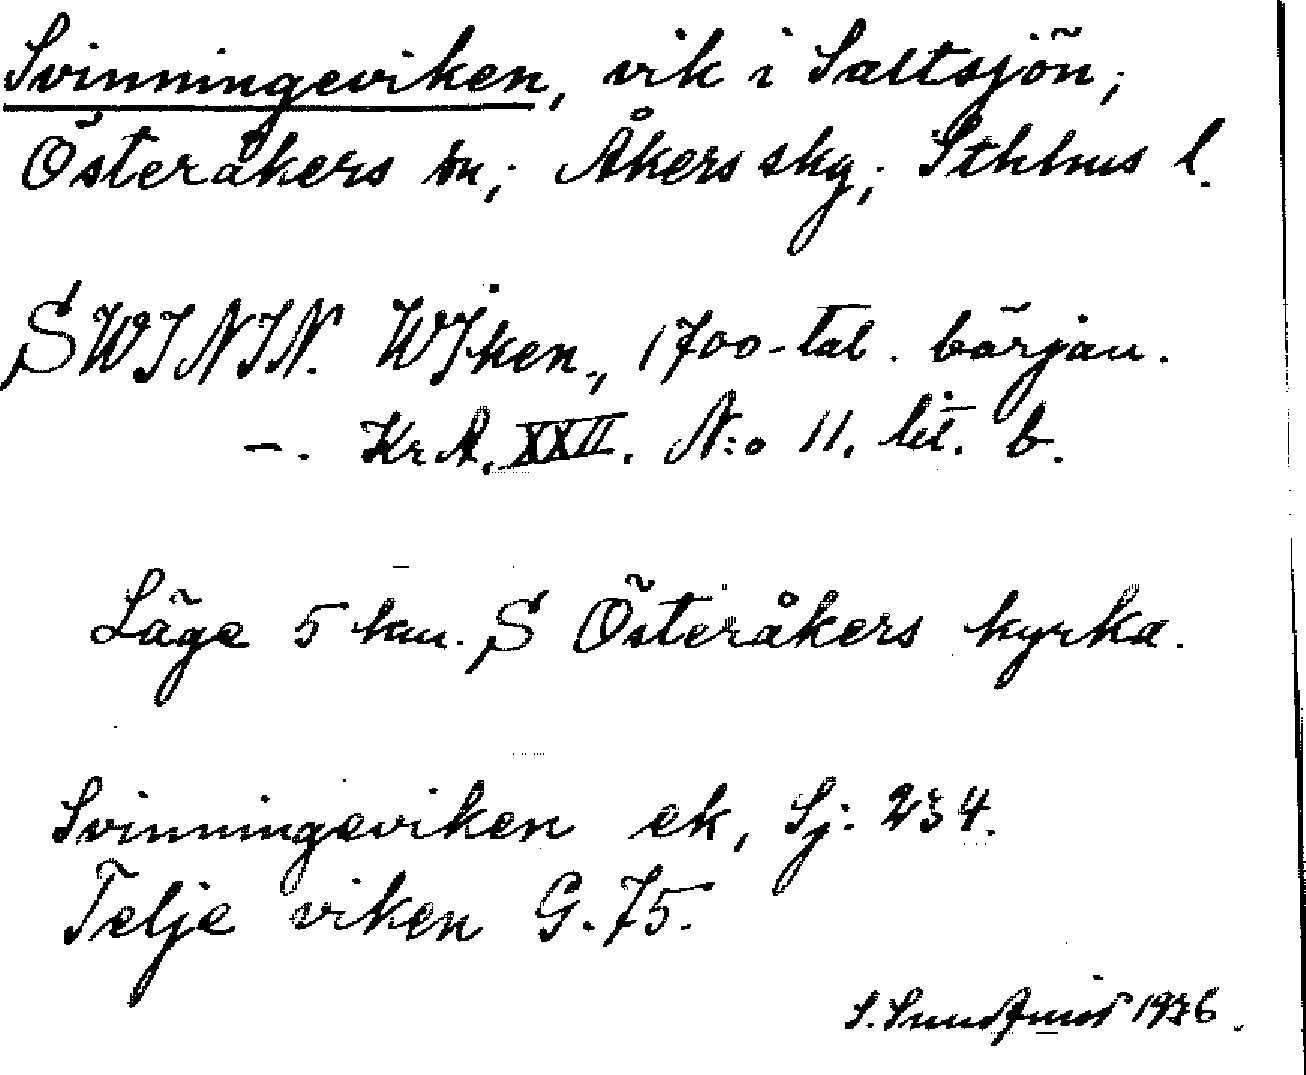 Svinningeviken, vik i Saltsjön;
Österåkers sn; Åkers skg; Sthlms l.
SWININ. WIken., 1700-tal. början.
–. KrA. XXII. N:o 11. lit. b.
Läge 5 km. S Österåkers kyrka.
Svinningeviken ek, Sj: 234.
Telje viken G. 75.
S. Sundqvist 1936.